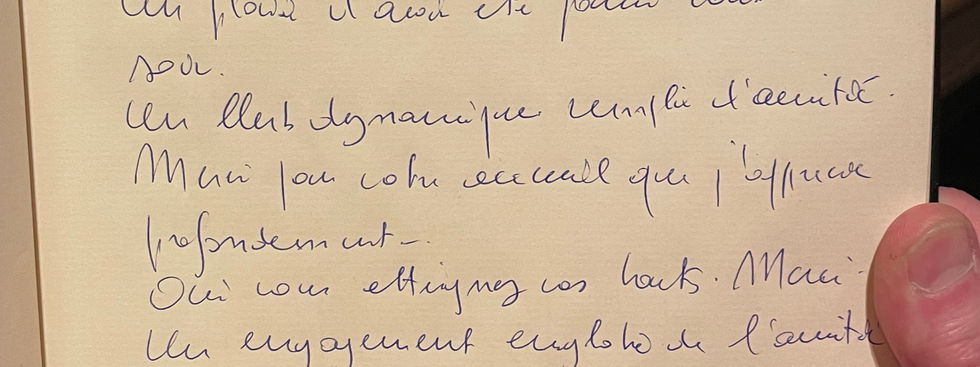 Un plaisir d'avoir été parmi vous
soir.
Un Club dynamique remplie d'amitié.
Merci pour votre accueil que j'apprecie
profondement -
Oui vous atteignez vos buts. Merci.
Un engagement englobé de l'amitié